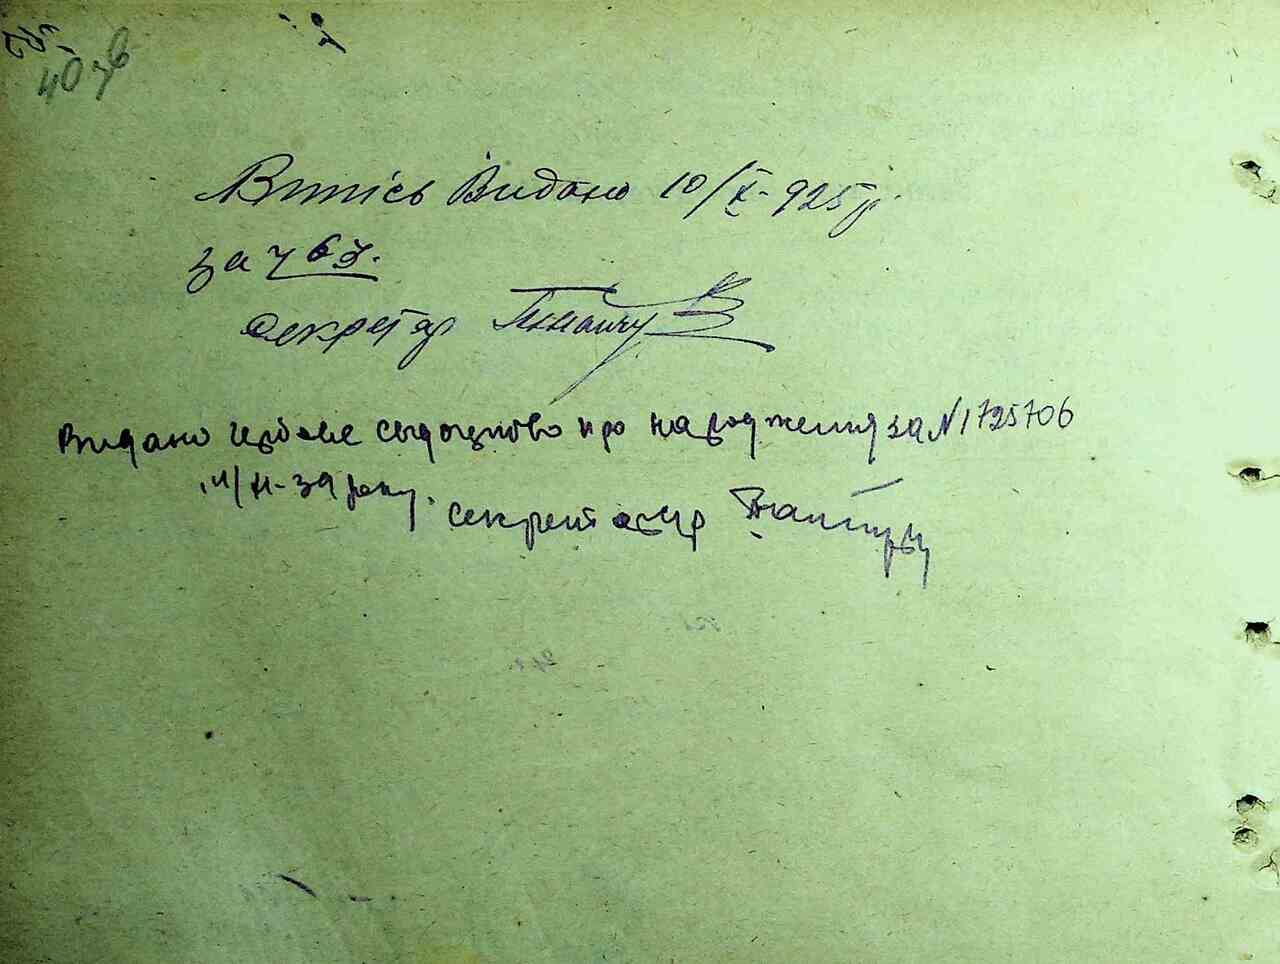 40 зв
Витісь Видано 10/X-925 р.
за ч 63.
Секретар
Видано Гербове свидоцтво про народження за N 1725706
11/XI-39 року.
секретар